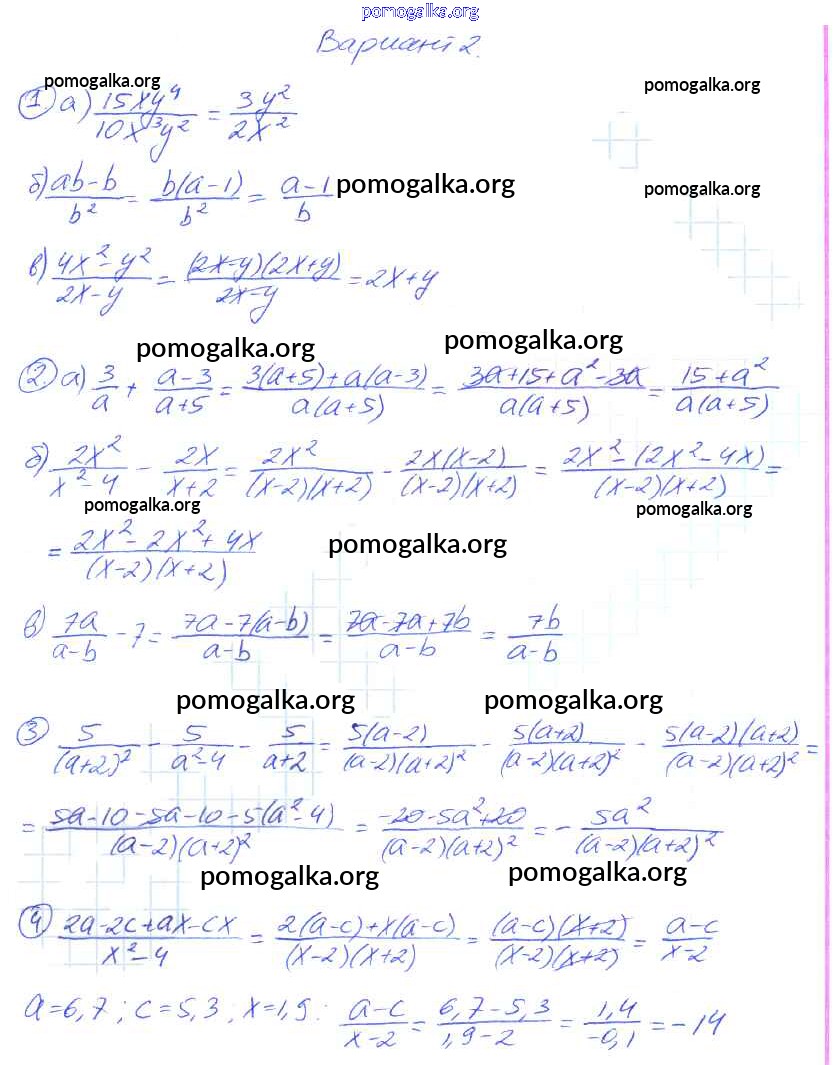 pomogalka.org
Вариант 2.
pomogalka.org pomogalka.org
① а) 15xy⁴/10x³y² = 3y²/2x²
б) ab-b/b² = b(a-1)/b² = a-1/b pomogalka.org pomogalka.org
в) 4x²-y²/2x-y = (2x-y)(2x+y)/2x-y = 2x+y
pomogalka.org pomogalka.org
② а) 3/a + a-3/a+5 = 3(a+5)+a(a-3)/a(a+5) = 3a+15+a²-3a/a(a+5) = 15+a²/a(a+5)
б) 2x²/x²-4 - 2x/x+2 = 2x²/(x-2)(x+2) - 2x(x-2)/(x-2)(x+2) = 2x²-(2x²-4x)/(x-2)(x+2) =
pomogalka.org pomogalka.org
= 2x²-2x²+4x/(x-2)(x+2) pomogalka.org
в) 7a/a-b - 7 = 7a-7(a-b)/a-b = 7a-7a+7b/a-b = 7b/a-b
pomogalka.org pomogalka.org
③ 5/(a+2)² - 5/a²-4 - 5/a+2 = 5(a-2)/(a-2)(a+2)² - 5(a+2)/(a-2)(a+2)² - 5(a-2)(a+2)/(a-2)(a+2)² =
= 5a-10-5a-10-5(a²-4)/(a-2)(a+2)² = -20-5a²+20/(a-2)(a+2)² = - 5a²/(a-2)(a+2)²
pomogalka.org pomogalka.org
④ 2a-2c+ax-cx/x²-4 = 2(a-c)+x(a-c)/(x-2)(x+2) = (a-c)(x+2)/(x-2)(x+2) = a-c/x-2
a=6,7; c=5,3; x=1,9: a-c/x-2 = 6,7-5,3/1,9-2 = 1,4/-0,1 = -14